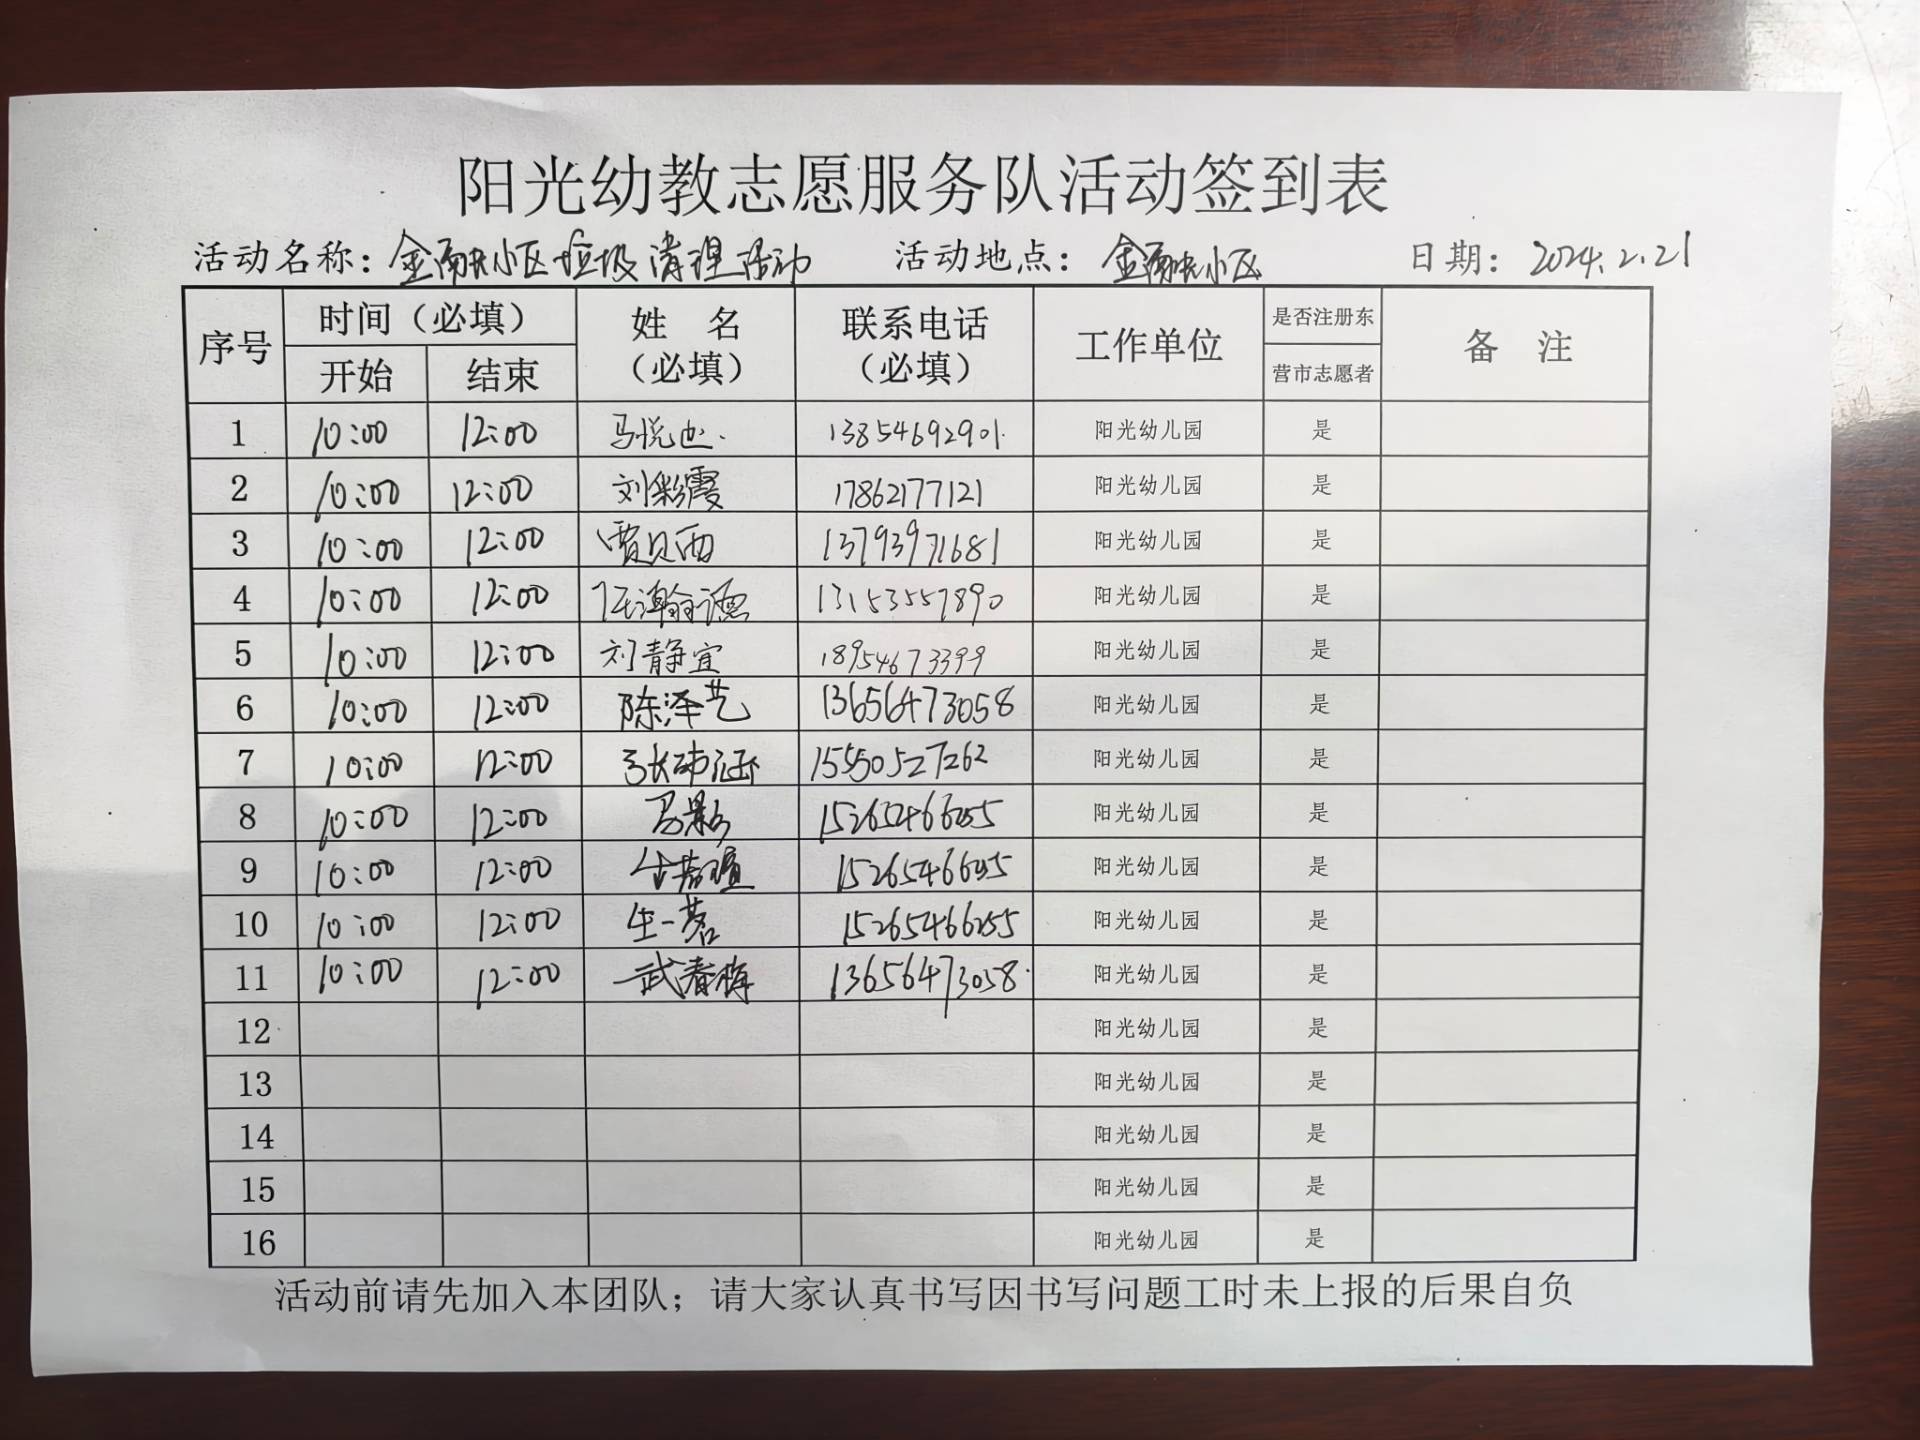 阳光幼教志愿服务队活动签到表
活动名称：金融小区垃圾清理活动 活动地点：金融小区 日期：2024.2.21
序号 时间（必填） 姓 名（必填） 联系电话（必填） 工作单位 是否注册东营市志愿者 备 注
开始 结束
1 10:00 12:00 马悦 13854692901 阳光幼儿园 是
2 10:00 12:00 刘彩霞 17862177121 阳光幼儿园 是
3 10:00 12:00 贾贝西 13793971681 阳光幼儿园 是
4 10:00 12:00 任瀚德 13153557890 阳光幼儿园 是
5 10:00 12:00 刘静宜 18954673399 阳光幼儿园 是
6 10:00 12:00 陈泽艺 13656473058 阳光幼儿园 是
7 10:00 12:00 张沛涵 15550527262 阳光幼儿园 是
8 10:00 12:00 马影 15265466255 阳光幼儿园 是
9 10:00 12:00 15265466255 阳光幼儿园 是
10 10:00 12:00 生一茗 15265466255 阳光幼儿园 是
11 10:00 12:00 武春梅 13656473058 阳光幼儿园 是
12 阳光幼儿园 是
13 阳光幼儿园 是
14 阳光幼儿园 是
15 阳光幼儿园 是
16 阳光幼儿园 是
活动前请先加入本团队；请大家认真书写因书写问题工时未上报的后果自负